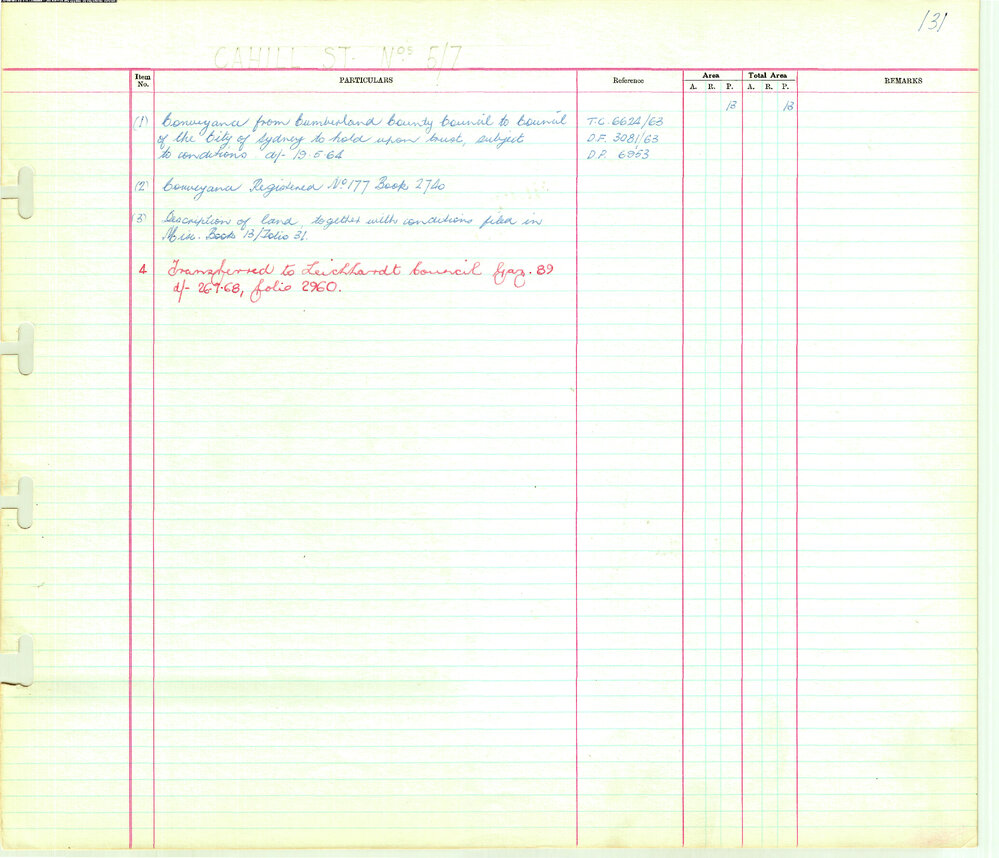 131
CAHILL ST. Nos 5/7
Item No. PARTICULARS Reference Area Total Area REMARKS
A. R. P. A. R. P.
13 13
(1) Conveyance from Cumberland County Council to Council T.C. 6624/63
of the City of Sydney to hold upon trust, subject D.F. 3081/63
to conditions d/- 19.5.64 D.P. 6953
(2) Conveyance Registered No 177 Book 2740
(3) Description of land, together with conditions filed in
Misc. Book 13/Folio 31.
4 Transferred to Leichhardt Council Gaz. 89
d/- 26.7.68, folio 2960.